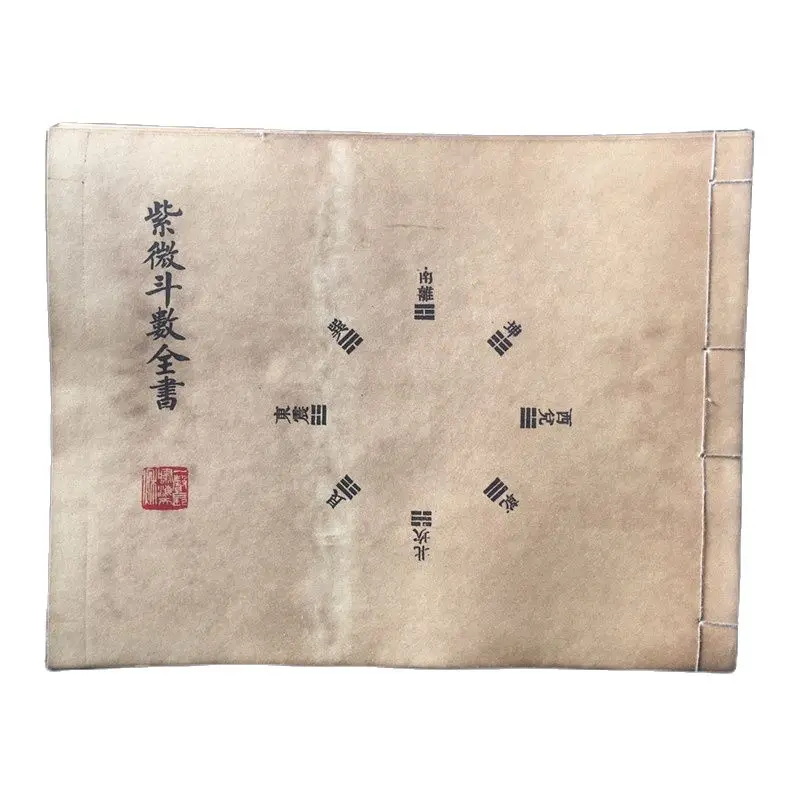 紫微斗數全書
南離
坤
西兌
乾
北坎
艮
東震
巽